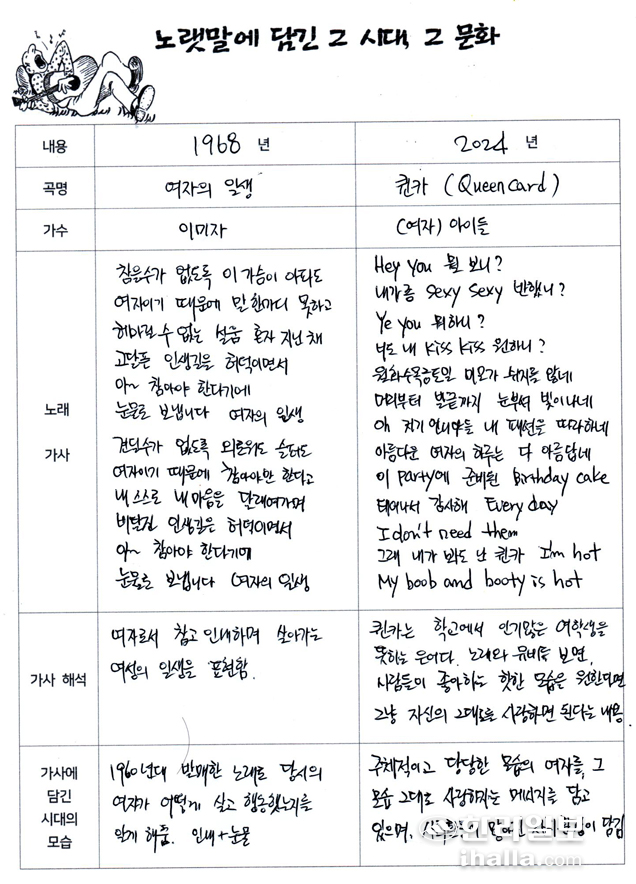 노랫말에 담긴 그 시대, 그 문화
내용
1968 년
2024 년
곡명
여자의 일생
퀸카 (Queencard)
가수
이미자
(여자) 아이들
노래
가사
참을수가 없도록 이 가슴이 아파도
여자이기 때문에 말 한마디 못하고
헤아릴 수 없는 설움 혼자 지닌 채
고달픈 인생길을 허덕이면서
아~ 참아야 한다기에
눈물로 보냅니다 여자의 일생
견딜수가 없도록 외로워도 슬퍼도
여자이기 때문에 참아야만 한다고
내 스스로 내 마음을 달래어가며
비탈진 인생길은 허덕이면서
아~ 참아야 한다기에
눈물로 보냅니다 여자의 일생
Hey You 뭘 보니?
내가 좀 Sexy Sexy 반했니?
Ye you 뭐하니?
너도 내 Kiss Kiss 원하니?
월화수목금토일 미모가 쉬지를 않네
머리부터 발끝까지 눈부셔 빛이나네
Oh 저기 언니야들 내 패션을 따라하네
아름다운 여자의 하루는 다 아름답네
이 Party에 준비된 Birthday cake
태어나서 감사해 Every day
I don't need them
그래 내가 봐도 난 퀸카 I'm hot
My boob and booty is hot
가사 해석
여자로서 참고 인내하며 살아가는
여성의 일생을 표현함.
퀸카는 학교에서 인기많은 여학생을
뜻하는 은어다. 노래와 뮤비를 보면,
사람들이 좋아하는 핫한 모습을 원한다면
그냥 자신의 그대로를 사랑하면 된다는 내용
가사에
담긴
시대의
모습
1960년대 발매한 노래로 당시의
여자가 어떻게 살고 행동했는지를
알게 해줌. 인내+눈물
주체적이고 당당한 모습의 여자를, 그
모습 그대로 사랑하자는 메시지를 담고
있으며, 담김
한라일보
ihalla.com